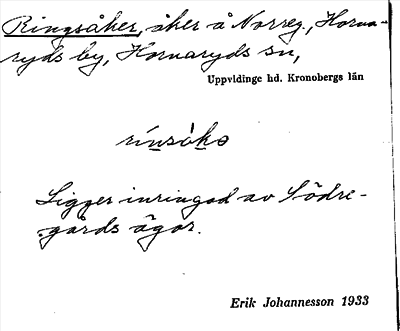 Ringsåker, åker å Norreg., Horna-
ryds by, Hornaryds sn,
Uppvidinge hd. Kronobergs län
rínsòkə
Ligger inringad av Södre-
gårds ägor.
Erik Johannesson 1933